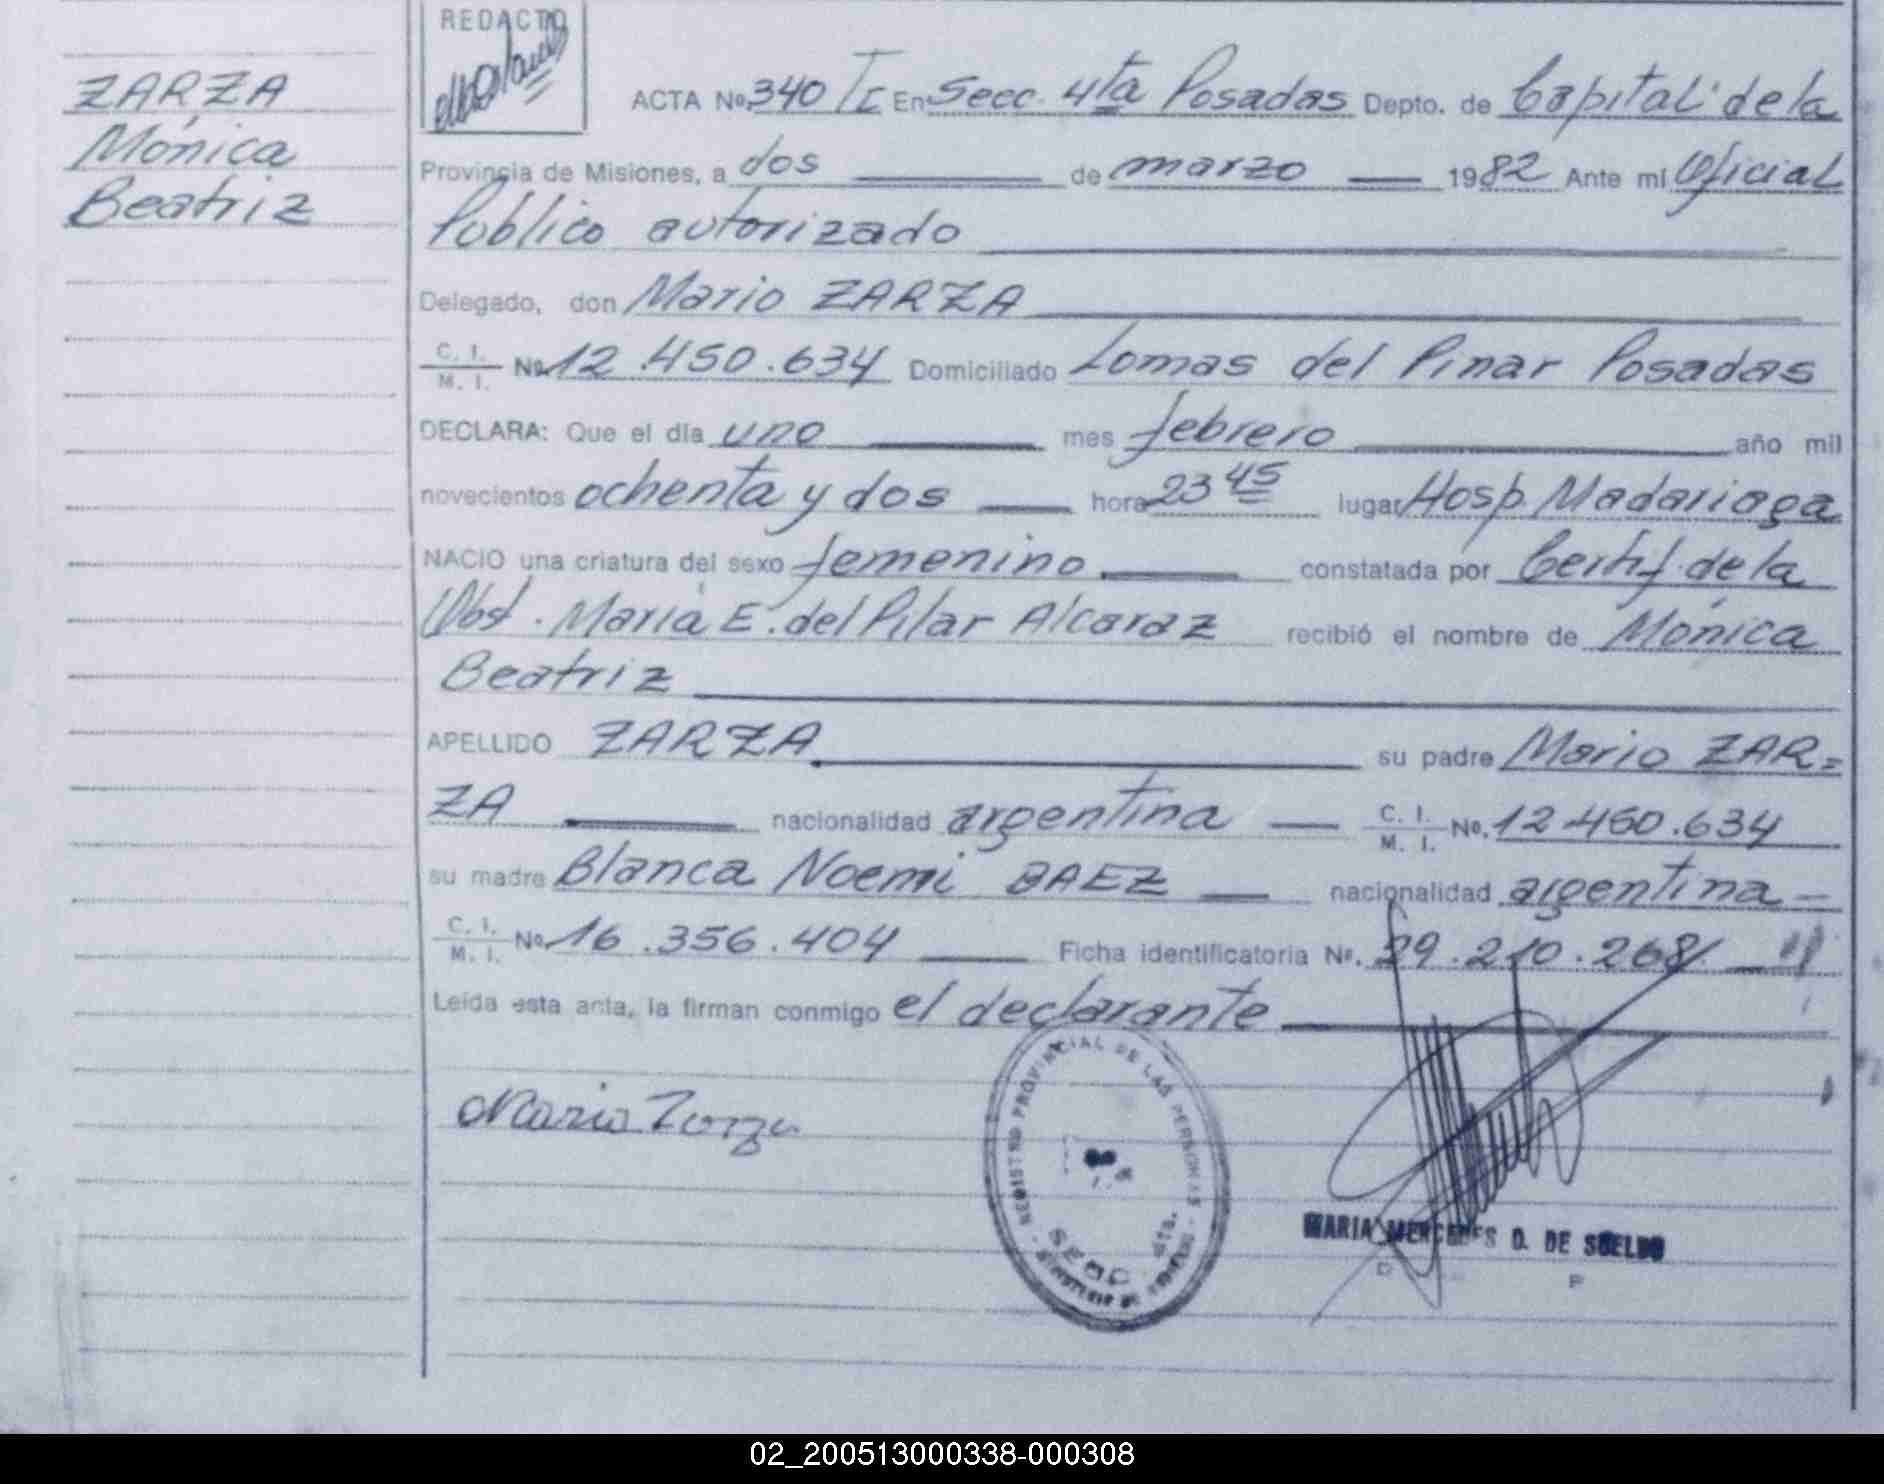 REDACTO
ZARZA
Mónica
Beatriz
ACTA No. 340 TI En Secc. 4ta Posadas Depto. de Capital de la
Provincia de Misiones, a dos de marzo 1982 Ante mi Oficial
Público autorizado
Delegado, don Mario ZARZA
C. I. M. I. No. 12.450.634 Domiciliado Lomas del Pinar Posadas
DECLARA: Que el día uno mes febrero año mil
novecientos ochenta y dos hora 23 45 lugar Hosp. Madariaga
NACIO una criatura del sexo femenino constatada por Certif. de la
Obst. María E. del Pilar Alcaraz recibió el nombre de Mónica
Beatriz
APELLIDO ZARZA su padre Mario ZAR=
ZA nacionalidad argentina C. I. M. I. No. 12.450.634
su madre Blanca Noemi BAEZ nacionalidad argentina
C. I. M. I. No. 16.356.404 Ficha identificatoria No. 29.210.268
Leída esta acta, la firman conmigo el declarante
Mario Zarza
REGISTRO PROVINCIAL DE LAS PERSONAS
SECC 4ta.
MARIA MERCEDES D. DE SUELDO
02_200513000338-000308